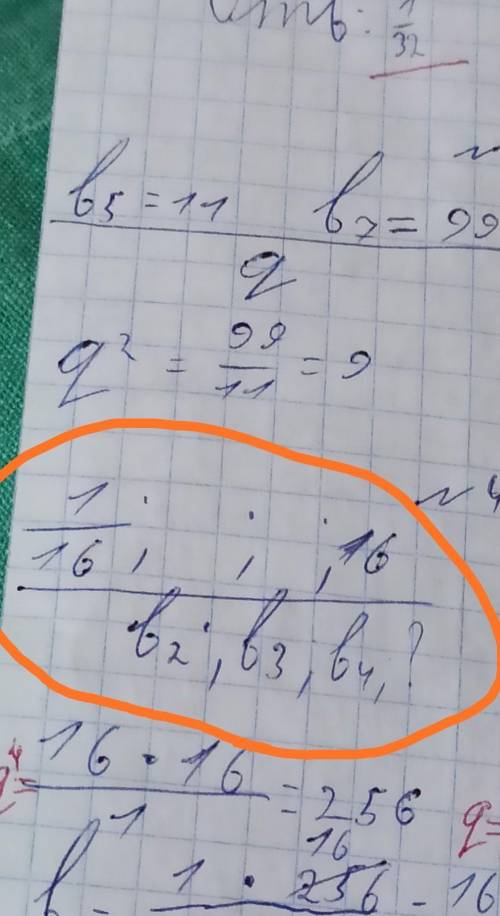 Отв: 1/32
b5 = 11 b7 = 99
q
q² = 99/11 = 9
№4
1/16; ; ; 16
b2, b3, b4, ?
q⁴ = 16·16/1 = 256 q =
16
1 · 256 = 16